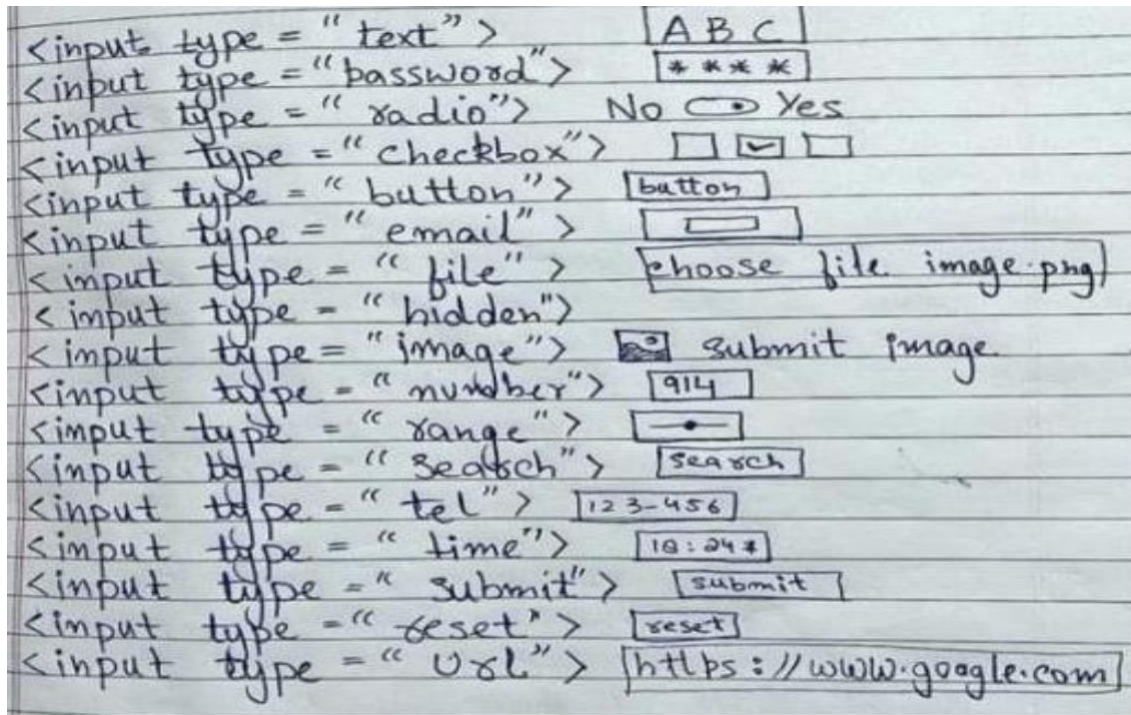 <input type = "text"> ABC
<input type = "password"> ****
<input type = "radio"> No Yes
<input type = "checkbox">
<input type = "button"> button
<input type = "email">
<input type = "file"> choose file image.png
<input type = "hidden">
<input type = "image"> submit image
<input type = "number"> 914
<input type = "range">
<input type = "search"> search
<input type = "tel"> 123-456
<input type = "time">
<input type = "submit"> submit
<input type = "reset"> reset
<input type = "Url"> https://www.google.com